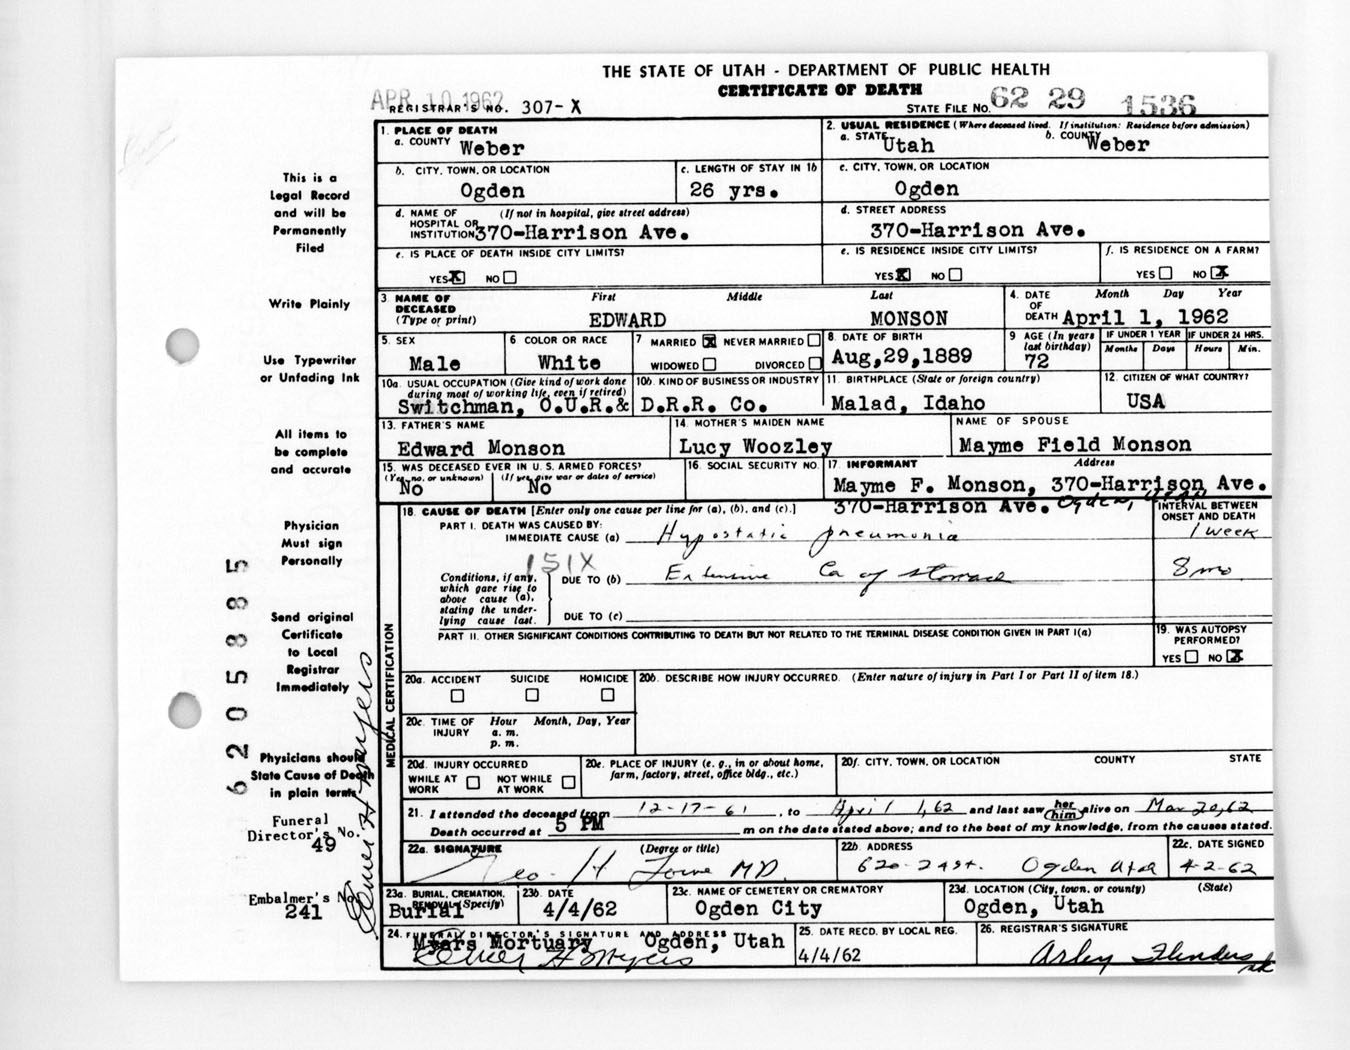 THE STATE OF UTAH - DEPARTMENT OF PUBLIC HEALTH
CERTIFICATE OF DEATH
APR 10 1962
REGISTRAR'S NO. 307-X
STATE FILE NO. 62 29 1536
1. PLACE OF DEATH
a. COUNTY Weber
2. USUAL RESIDENCE (Where deceased lived. If institution: Residence before admission)
a. STATE Utah b. COUNTY Weber
b. CITY, TOWN, OR LOCATION Ogden
c. LENGTH OF STAY IN 1b 26 yrs.
c. CITY, TOWN, OR LOCATION Ogden
d. NAME OF HOSPITAL OR INSTITUTION (If not in hospital, give street address) 370-Harrison Ave.
d. STREET ADDRESS 370-Harrison Ave.
e. IS PLACE OF DEATH INSIDE CITY LIMITS?
YES X NO
e. IS RESIDENCE INSIDE CITY LIMITS?
YES X NO
f. IS RESIDENCE ON A FARM?
YES NO X
3. NAME OF DECEASED (Type or print) First Middle Last
EDWARD MONSON
4. DATE OF DEATH Month Day Year
April 1, 1962
5. SEX Male
6 COLOR OR RACE White
7 MARRIED X NEVER MARRIED
WIDOWED DIVORCED
8. DATE OF BIRTH Aug,29,1889
9 AGE (In years last birthday) 72
IF UNDER 1 YEAR Months Days
IF UNDER 24 HRS. Hours Min.
10a. USUAL OCCUPATION (Give kind of work done during most of working life, even if retired)
Switchman, O.U.R.&
10b. KIND OF BUSINESS OR INDUSTRY
D.R.R. Co.
11. BIRTHPLACE (State or foreign country)
Malad, Idaho
12. CITIZEN OF WHAT COUNTRY?
USA
13. FATHER'S NAME
Edward Monson
14. MOTHER'S MAIDEN NAME
Lucy Woozley
NAME OF SPOUSE
Mayme Field Monson
15. WAS DECEASED EVER IN U.S. ARMED FORCES?
(Yes, no, or unknown) (If yes, give war or dates of service)
No No
16. SOCIAL SECURITY NO.
17. INFORMANT Address
Mayme F. Monson, 370-Harrison Ave.
370-Harrison Ave. Ogden, Utah
18. CAUSE OF DEATH [Enter only one cause per line for (a), (b), and (c).]
INTERVAL BETWEEN ONSET AND DEATH
PART I. DEATH WAS CAUSED BY:
IMMEDIATE CAUSE (a) Hypostatic pneumonia 1 week
151X
Conditions, if any, which gave rise to above cause (a), stating the underlying cause last.
DUE TO (b) Extensive Ca of stomach 8 mo
DUE TO (c)
PART II. OTHER SIGNIFICANT CONDITIONS CONTRIBUTING TO DEATH BUT NOT RELATED TO THE TERMINAL DISEASE CONDITION GIVEN IN PART I(a)
19. WAS AUTOPSY PERFORMED?
YES NO X
MEDICAL CERTIFICATION
20a. ACCIDENT SUICIDE HOMICIDE
20b. DESCRIBE HOW INJURY OCCURRED. (Enter nature of injury in Part I or Part II of item 18.)
20c. TIME OF INJURY Hour Month, Day, Year
a. m.
p. m.
20d. INJURY OCCURRED
WHILE AT WORK NOT WHILE AT WORK
20e. PLACE OF INJURY (e. g., in or about home, farm, factory, street, office bldg., etc.)
20f. CITY, TOWN, OR LOCATION COUNTY STATE
21. I attended the deceased from 12-17-61, to April 1, 62 and last saw her him alive on Mar 20, 62
Death occurred at 5 PM m on the date stated above; and to the best of my knowledge, from the causes stated.
22a. SIGNATURE (Degree or title)
Geo. H Lowe MD.
22b. ADDRESS
620-24 st. Ogden Utah
22c. DATE SIGNED
4-2-62
23a. BURIAL, CREMATION, REMOVAL (Specify)
Burial
23b. DATE
4/4/62
23c. NAME OF CEMETERY OR CREMATORY
Ogden City
23d. LOCATION (City, town, or county) (State)
Ogden, Utah
24. FUNERAL DIRECTOR'S SIGNATURE AND ADDRESS
Myers Mortuary Ogden, Utah
Elmer H Myers
25. DATE RECD. BY LOCAL REG.
4/4/62
26. REGISTRAR'S SIGNATURE
Arley Flinders
This is a
Legal Record
and will be
Permanently
Filed
Write Plainly
Use Typewriter
or Unfading Ink
All items to
be complete
and accurate
Physician
Must sign
Personally
Send original
Certificate
to Local
Registrar
Immediately
Physicians should
State Cause of Death
in plain terms
Funeral
Director's No.
49
Embalmer's No.
241
Elmer H Myers
62058 85